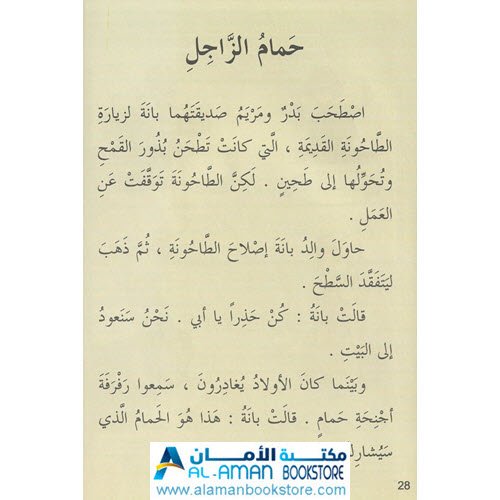 حَمامُ الزَّاجِلِ
اصْطَحَبَ بَدْرٌ ومَرْيَمُ صَديقَتَهُما بانَةَ لزيارَةِ
الطَّاحُونَةِ القَديمَةِ ، الَّتي كانَتْ تَطْحَنُ بُذورَ القَمْحِ
وتُحَوِّلُها إلى طَحينٍ . لَكِنَّ الطَّاحُونَةَ تَوَقَّفَتْ عَنِ
العَمَلِ .
حاوَلَ والِدُ بانَةَ إصْلاحَ الطَّاحُونَةِ ، ثُمَّ ذَهَبَ
ليَتَفَقَّدَ السَّطْحَ .
قالَتْ بانَةُ : كُنْ حَذِراً يا أبي . نَحْنُ سَنَعودُ
إلى البَيْتِ .
وبَيْنَما كانَ الأولادُ يُغادِرُونَ ، سَمِعوا رَفْرَفَةَ
أجْنِحَةِ حَمامٍ . قالَتْ بانَةُ : هَذا هُوَ الحَمامُ الَّذي
مكتبة الأمان
AL-AMAN BOOKSTORE
www.alamanbookstore.com
28